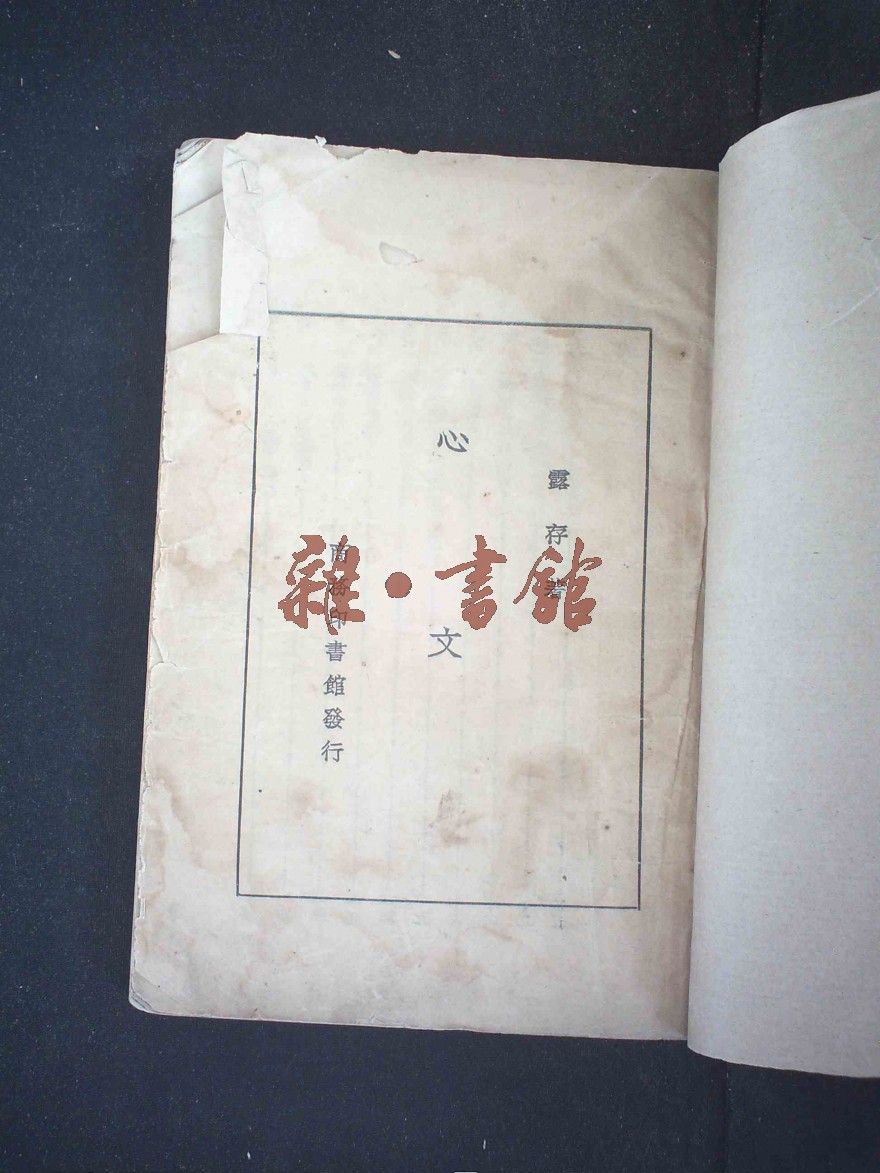 露存著
心文
商務印書館發行
雜·書館